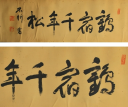 鶴宿千年松
鶴宿千年